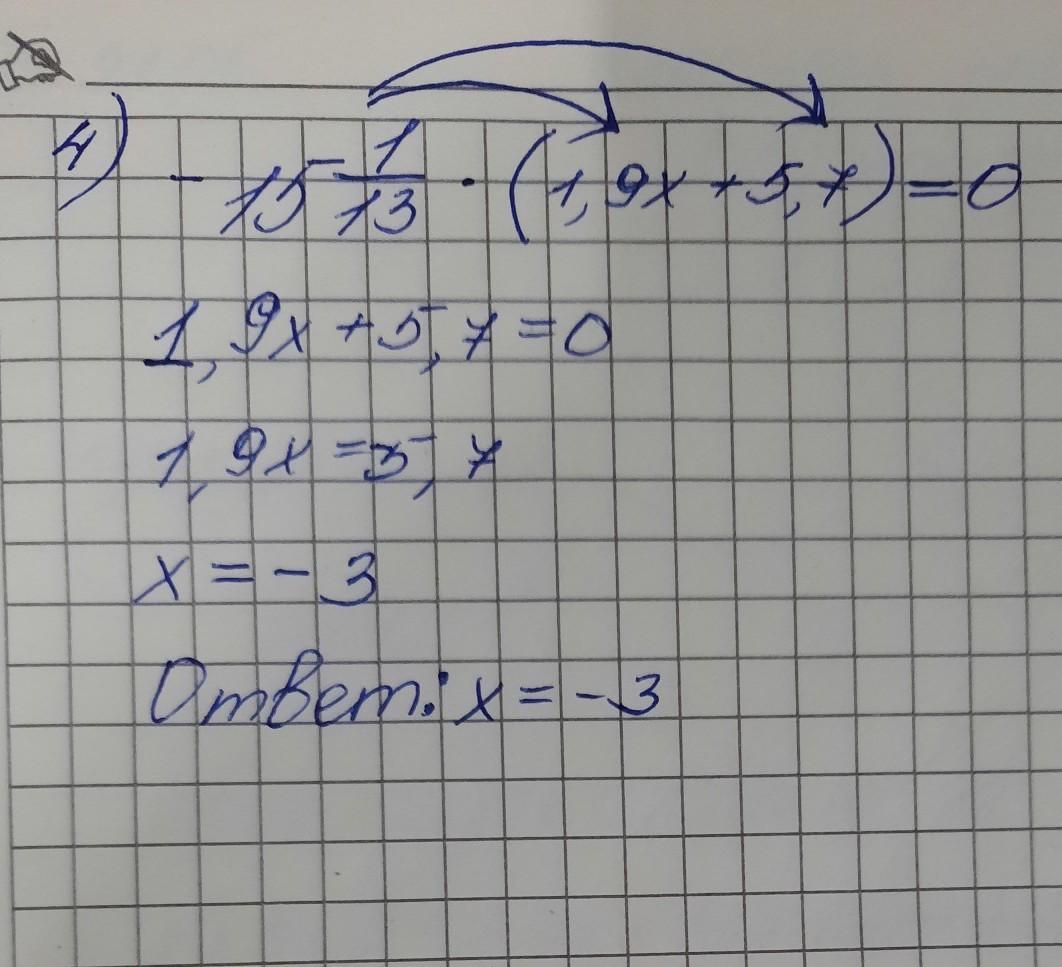 4) - 15 1/13 · (1,9x + 5,7) = 0
1,9x + 5,7 = 0
1,9x = 5,7
x = - 3
Ответ: x = - 3